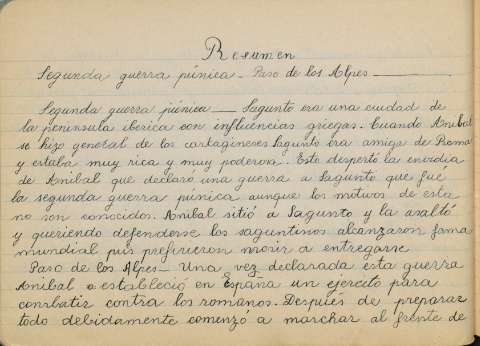 Resumen
Segunda guerra púnica - Paso de los Alpes
Segunda guerra púnica — Sagunto era una ciudad de
la península ibérica con influencias griegas. Cuando Anibal
se hizo general de los cartagineses Sagunto era amiga de Roma
y estaba muy rica y muy poderosa. Esto despertó la envidia
de Anibal que declaró una guerra a Sagunto que fué
la segunda guerra púnica aunque los motivos de esta
no son conocidos. Anibal sitió a Sagunto y la asaltó
y queriendo defenderse los saguntinos alcanzaron fama
mundial pués prefirieron morir a entregarse
Paso de los Alpes — Una vez declarada esta guerra
Anibal estableció en España un ejército para
combatir contra los romanos. Después de preparar
todo debidamente comenzó a marchar al frente de